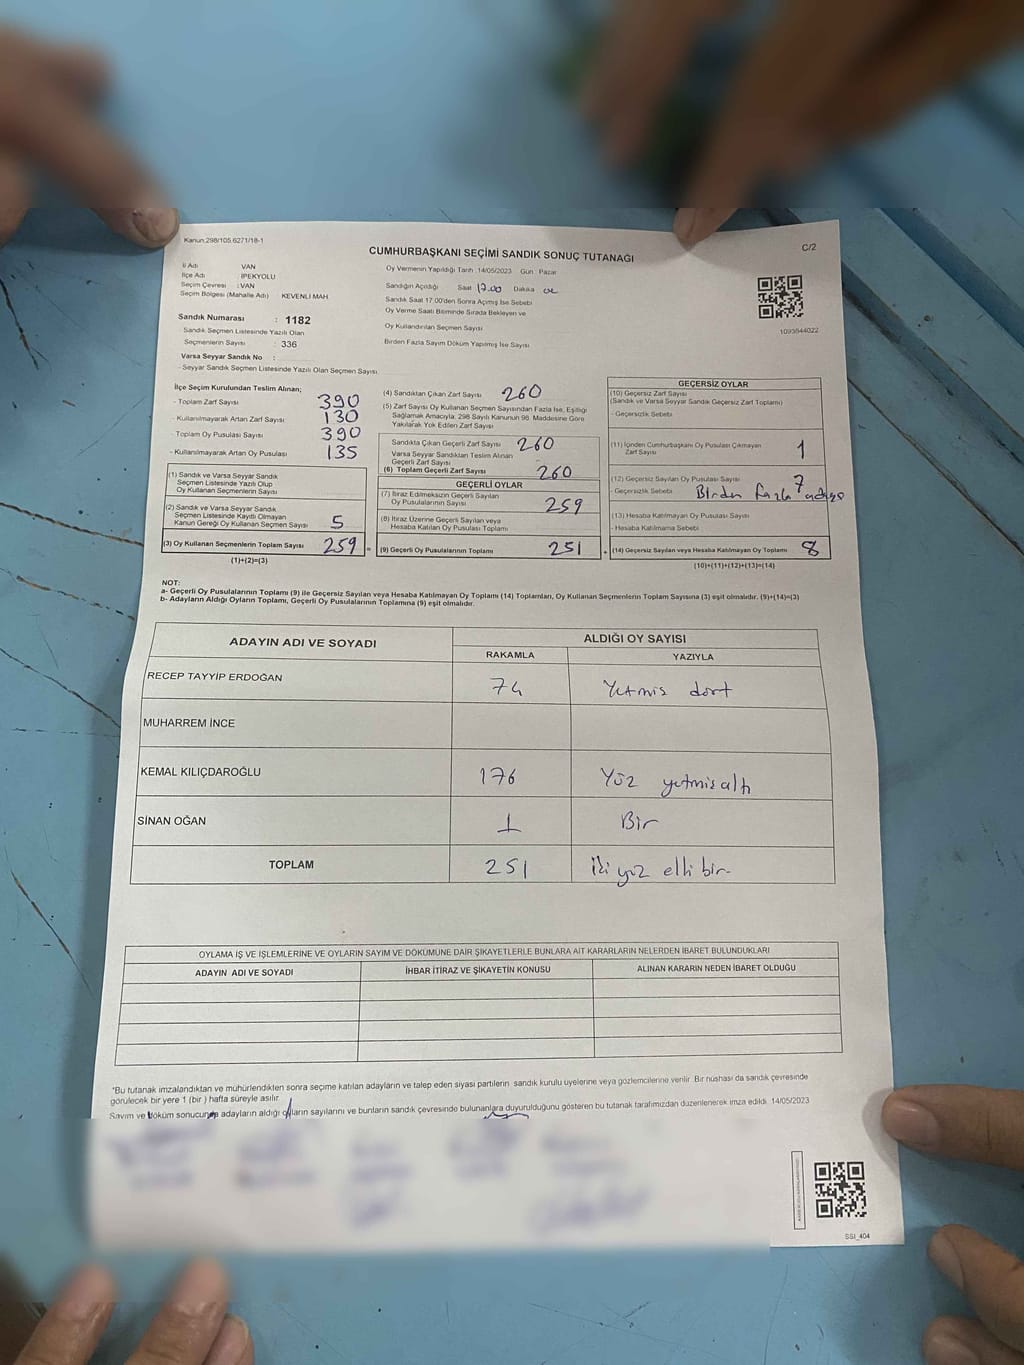 Kanun:298/105,6271/18-1
C/2
CUMHURBAŞKANI SEÇİMİ SANDIK SONUÇ TUTANAĞI
İl Adı VAN
İlçe Adı İPEKYOLU
Seçim Çevresi : VAN
Seçim Bölgesi (Mahalle Adı) KEVENLİ MAH
Sandık Numarası : 1182
Sandık Seçmen Listesinde Yazılı Olan
Seçmenlerin Sayısı : 336
Varsa Seyyar Sandık No :
Seyyar Sandık Seçmen Listesinde Yazılı Olan Seçmen Sayısı
Oy Vermenin Yapıldığı Tarih :14/05/2023 Gün : Pazar
Sandığın Açıldığı Saat 17.00 Dakika
Sandık Saat 17.00'den Sonra Açılmış İse Sebebi
Oy Verme Saati Bitiminde Sırada Bekleyen ve
Oy Kullandırılan Seçmen Sayısı
Birden Fazla Sayım Döküm Yapılmış İse Sayısı
1093844022
İlçe Seçim Kurulundan Teslim Alınan;
- Toplam Zarf Sayısı 390
- Kullanılmayarak Artan Zarf Sayısı 130
- Toplam Oy Pusulası Sayısı 390
- Kullanılmayarak Artan Oy Pusulası 135
(1) Sandık ve Varsa Seyyar Sandık
Seçmen Listesinde Yazılı Olup
Oy Kullanan Seçmenlerin Sayısı
(2) Sandık ve Varsa Seyyar Sandık
Seçmen Listesinde Kayıtlı Olmayan
Kanun Gereği Oy Kullanan Seçmen Sayısı 5
(3) Oy Kullanan Seçmenlerin Toplam Sayısı 259 =
(1)+(2)=(3)
(4) Sandıktan Çıkan Zarf Sayısı 260
(5) Zarf Sayısı Oy Kullanan Seçmen Sayısından Fazla İse, Eşitliği
Sağlamak Amacıyla, 298 Sayılı Kanunun 98. Maddesine Göre
Yakılarak Yok Edilen Zarf Sayısı
Sandıkta Çıkan Geçerli Zarf Sayısı 260
Varsa Seyyar Sandıktan Teslim Alınan
Geçerli Zarf Sayısı
(6) Toplam Geçerli Zarf Sayısı 260
GEÇERLİ OYLAR
(7) İtiraz Edilmeksizin Geçerli Sayılan
Oy Pusulalarının Sayısı 259
(8) İtiraz Üzerine Geçerli Sayılan veya
Hesaba Katılan Oy Pusulası Toplamı
(9) Geçerli Oy Pusulalarının Toplamı 251 +
GEÇERSİZ OYLAR
(10) Geçersiz Zarf Sayısı
(Sandık ve Varsa Seyyar Sandık Geçersiz Zarf Toplamı)
- Geçersizlik Sebebi
(11) İçinden Cumhurbaşkanı Oy Pusulası Çıkmayan
Zarf Sayısı 1
(12) Geçersiz Sayılan Oy Pusulası Sayısı 7
- Geçersizlik Sebebi Birden fazla adaya
(13) Hesaba Katılmayan Oy Pusulası Sayısı
- Hesaba Katılmama Sebebi
(14) Geçersiz Sayılan veya Hesaba Katılmayan Oy Toplamı 8
(10)+(11)+(12)+(13)=(14)
NOT:
a- Geçerli Oy Pusulalarının Toplamı (9) ile Geçersiz Sayılan veya Hesaba Katılmayan Oy Toplamı (14) Toplamları, Oy Kullanan Seçmenlerin Toplam Sayısına (3) eşit olmalıdır. (9)+(14)=(3)
b- Adayların Aldığı Oyların Toplamı, Geçerli Oy Pusulalarının Toplamına (9) eşit olmalıdır.
ADAYIN ADI VE SOYADI ALDIĞI OY SAYISI
RAKAMLA YAZIYLA
RECEP TAYYİP ERDOĞAN 74 Yetmis dört
MUHARREM İNCE
KEMAL KILIÇDAROĞLU 176 Yüz yetmis altı
SİNAN OĞAN 1 Bir
TOPLAM 251 iki yüz elli bir
OYLAMA İŞ VE İŞLEMLERİNE VE OYLARIN SAYIM VE DÖKÜMÜNE DAİR ŞİKAYETLERLE BUNLARA AİT KARARLARIN NELERDEN İBARET BULUNDUKLARI
ADAYIN ADI VE SOYADI İHBAR İTİRAZ VE ŞİKAYETİN KONUSU ALINAN KARARIN NEDEN İBARET OLDUĞU
"Bu tutanak imzalandıktan ve mühürlendikten sonra seçime katılan adayların ve talep eden siyasi partilerin sandık kurulu üyelerine veya gözlemcilerine verilir. Bir nüshası da sandık çevresinde
görülecek bir yere 1 (bir ) hafta süreyle asılır.
Sayım ve döküm sonucunda adayların aldığı oyların sayılarını ve bunların sandık çevresinde bulunanlara duyurulduğunu gösteren bu tutanak tarafımızdan düzenlenerek imza edildi. 14/05/2023
SSİ_404